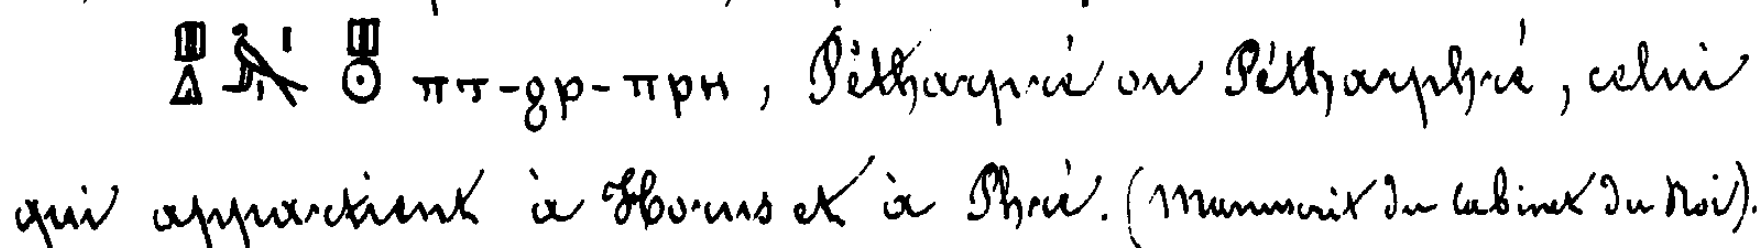 𓊪𓏙𓅃𓏤𓊪𓇳 ⲡⲧ-ϩⲣ-ⲡⲣⲏ, Pétharpré ou Pétharphré, celui
qui appartient à Horus et à Phré. (Manuscrit du Cabinet du Roi).